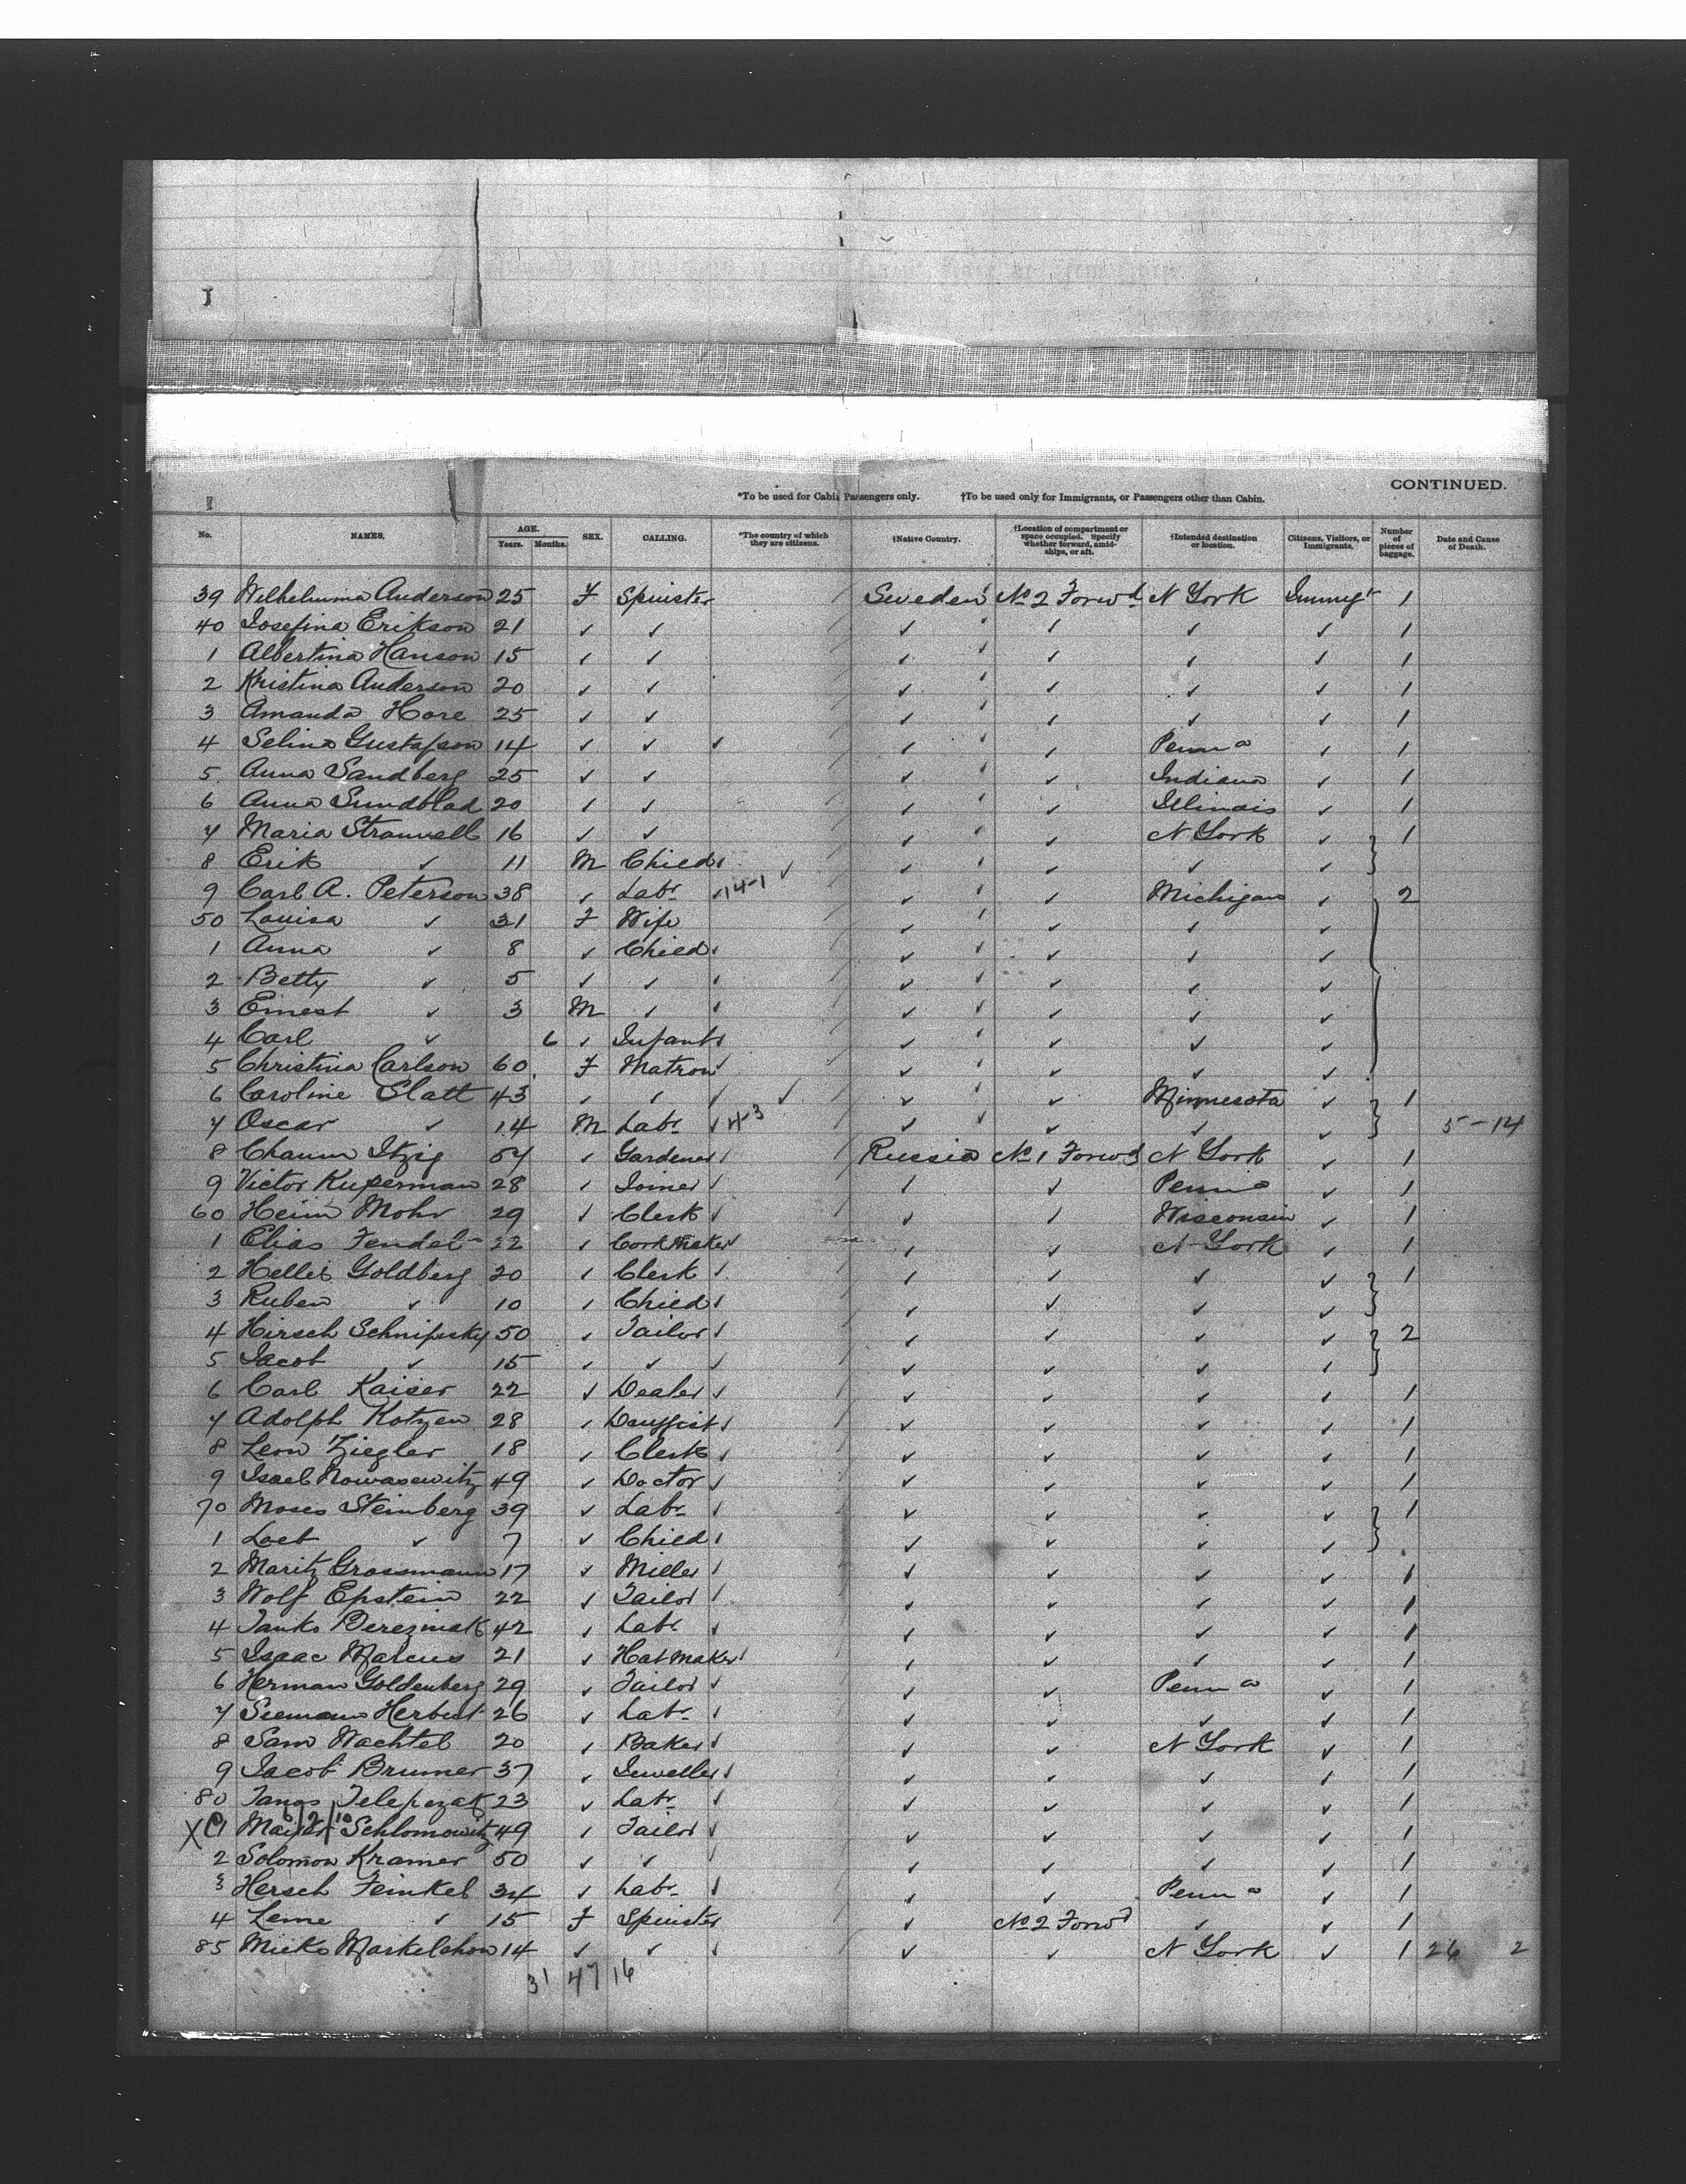 CONTINUED.
*To be used for Cabin Passengers only. †To be used only for Immigrants, or Passengers other than Cabin.
No. NAMES. AGE. Years. Months. SEX. CALLING. *The country of which they are citizens. †Native Country. †Location of compartment or space occupied. Specify whether forward, amidships, or aft. †Intended destination or location. Citizens, Visitors, or Immigrants. Number of pieces of baggage. Date and Cause of Death.
39 Wilhelmina Anderson 25 F Spinster Sweden No 2 Forwd N York Immigt 1
40 Josefina Erikson 21 ✓ ✓ ✓ ✓ ✓ ✓ 1
1 Albertina Hanson 15 ✓ ✓ ✓ ✓ ✓ ✓ 1
2 Kristina Anderson 20 ✓ ✓ ✓ ✓ ✓ ✓ 1
3 Amanda Hore 25 ✓ ✓ ✓ ✓ ✓ ✓ 1
4 Selina Gustafson 14 ✓ ✓ ✓ ✓ ✓ Penna ✓ 1
5 Anna Sandberg 25 ✓ ✓ ✓ ✓ Indiana ✓ 1
6 Anna Sundblad 20 ✓ ✓ ✓ ✓ Illinois ✓ 1
7 Maria 16 ✓ ✓ ✓ ✓ N York ✓ 1
8 Erik ✓ 11 M Child ✓ ✓ ✓ ✓ ✓
9 Carl A. Peterson 38 ✓ Labr 14-1 ✓ ✓ Michigan ✓ 2
50 Louisa ✓ 31 F Wife ✓ ✓ ✓ ✓
1 Anna ✓ 8 ✓ Child ✓ ✓ ✓ ✓
2 Betty ✓ 5 ✓ ✓ ✓ ✓ ✓ ✓
3 Ernest ✓ 3 M ✓ ✓ ✓ ✓ ✓
4 Carl ✓ 6 ✓ Infant ✓ ✓ ✓ ✓
5 Christina Carlson 60 F Matron ✓ ✓ ✓ ✓
6 Caroline Slatt 43 ✓ ✓ ✓ ✓ ✓ Minnesota ✓ 1
7 Oscar ✓ 14 M Labr ✓ ✓ ✓ ✓ 5-14
8 Itzig 57 ✓ Gardener Russia No 1 Forwd N York ✓ 1
9 Victor Kuperman 28 ✓ Joiner ✓ ✓ Penna ✓ 1
60 Heim Mohr 29 ✓ Clerk ✓ ✓ Wisconsin ✓ 1
1 Elias Fendel 22 ✓ Cork Maker ✓ ✓ N York ✓ 1
2 Goldberg 20 ✓ Clerk ✓ ✓ ✓ ✓ 1
3 Ruben ✓ 10 ✓ Child ✓ ✓ ✓ ✓
4 Hirsch Schnipisky 50 ✓ Tailor ✓ ✓ ✓ ✓ 2
5 Jacob ✓ 15 ✓ ✓ ✓ ✓ ✓ ✓ ✓
6 Carl Kaiser 22 ✓ Dealer ✓ ✓ ✓ ✓ ✓ 1
7 Adolph Kotzen 28 ✓ ✓ ✓ ✓ ✓ 1
8 Leon Ziegler 18 ✓ Clerk ✓ ✓ ✓ ✓ 1
9 Isael Nowasewitz 49 ✓ Doctor ✓ ✓ ✓ ✓ 1
70 Moses Steinberg 39 ✓ Labr ✓ ✓ ✓ ✓ 1
1 Loeb ✓ 7 ✓ Child ✓ ✓ ✓ ✓
2 Moritz Grossmann 17 ✓ Miller ✓ ✓ ✓ ✓ 1
3 Wolf Epstein 22 ✓ Tailor ✓ ✓ ✓ ✓ 1
4 Janko 42 ✓ Labr ✓ ✓ ✓ ✓ 1
5 Isaac Marcus 21 ✓ Hat Maker ✓ ✓ ✓ ✓ 1
6 Herman Goldenberg 29 ✓ Tailor ✓ ✓ Penna ✓ 1
7 Herbert 26 ✓ Labr ✓ ✓ ✓ ✓ 1
8 Sam Wachtel 20 ✓ Baker ✓ ✓ N York ✓ 1
9 Jacob Brumer 37 ✓ Jeweller ✓ ✓ ✓ ✓ 1
80 23 ✓ Labr ✓ ✓ ✓ ✓ 1
X Schlomowitz 49 ✓ Tailor ✓ ✓ ✓ ✓ 1
2 Solomon Kramer 50 ✓ ✓ ✓ ✓ ✓ ✓ 1
3 Hersch Feinkel 34 ✓ Labr ✓ ✓ Penna ✓ 1
4 Leme ✓ 15 F Spinster ✓ No 2 Forwd ✓ ✓ 1
85 14 ✓ ✓ ✓ ✓ ✓ N York ✓ 1 26 2
31 47 16